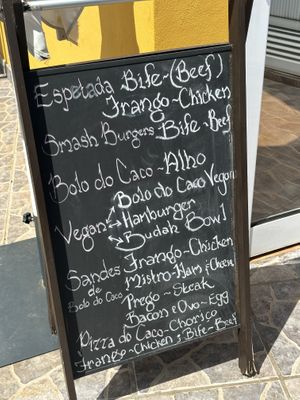 Espetada Bife-(Beef)
Frango-Chicken
Smash Burgers Bife-Beef
Bolo do Caco-Alho
Bolo do Caco Vegan
Vegan Hamburger
Budah Bowl
Sandes Frango-Chicken
de Mistro-Ham & Cheese
Bolo do Caco Prego-Steak
Bacon e Ovo-Egg
Pizza do Caco-Chorico
Frango-Chicken & Bife-Beef